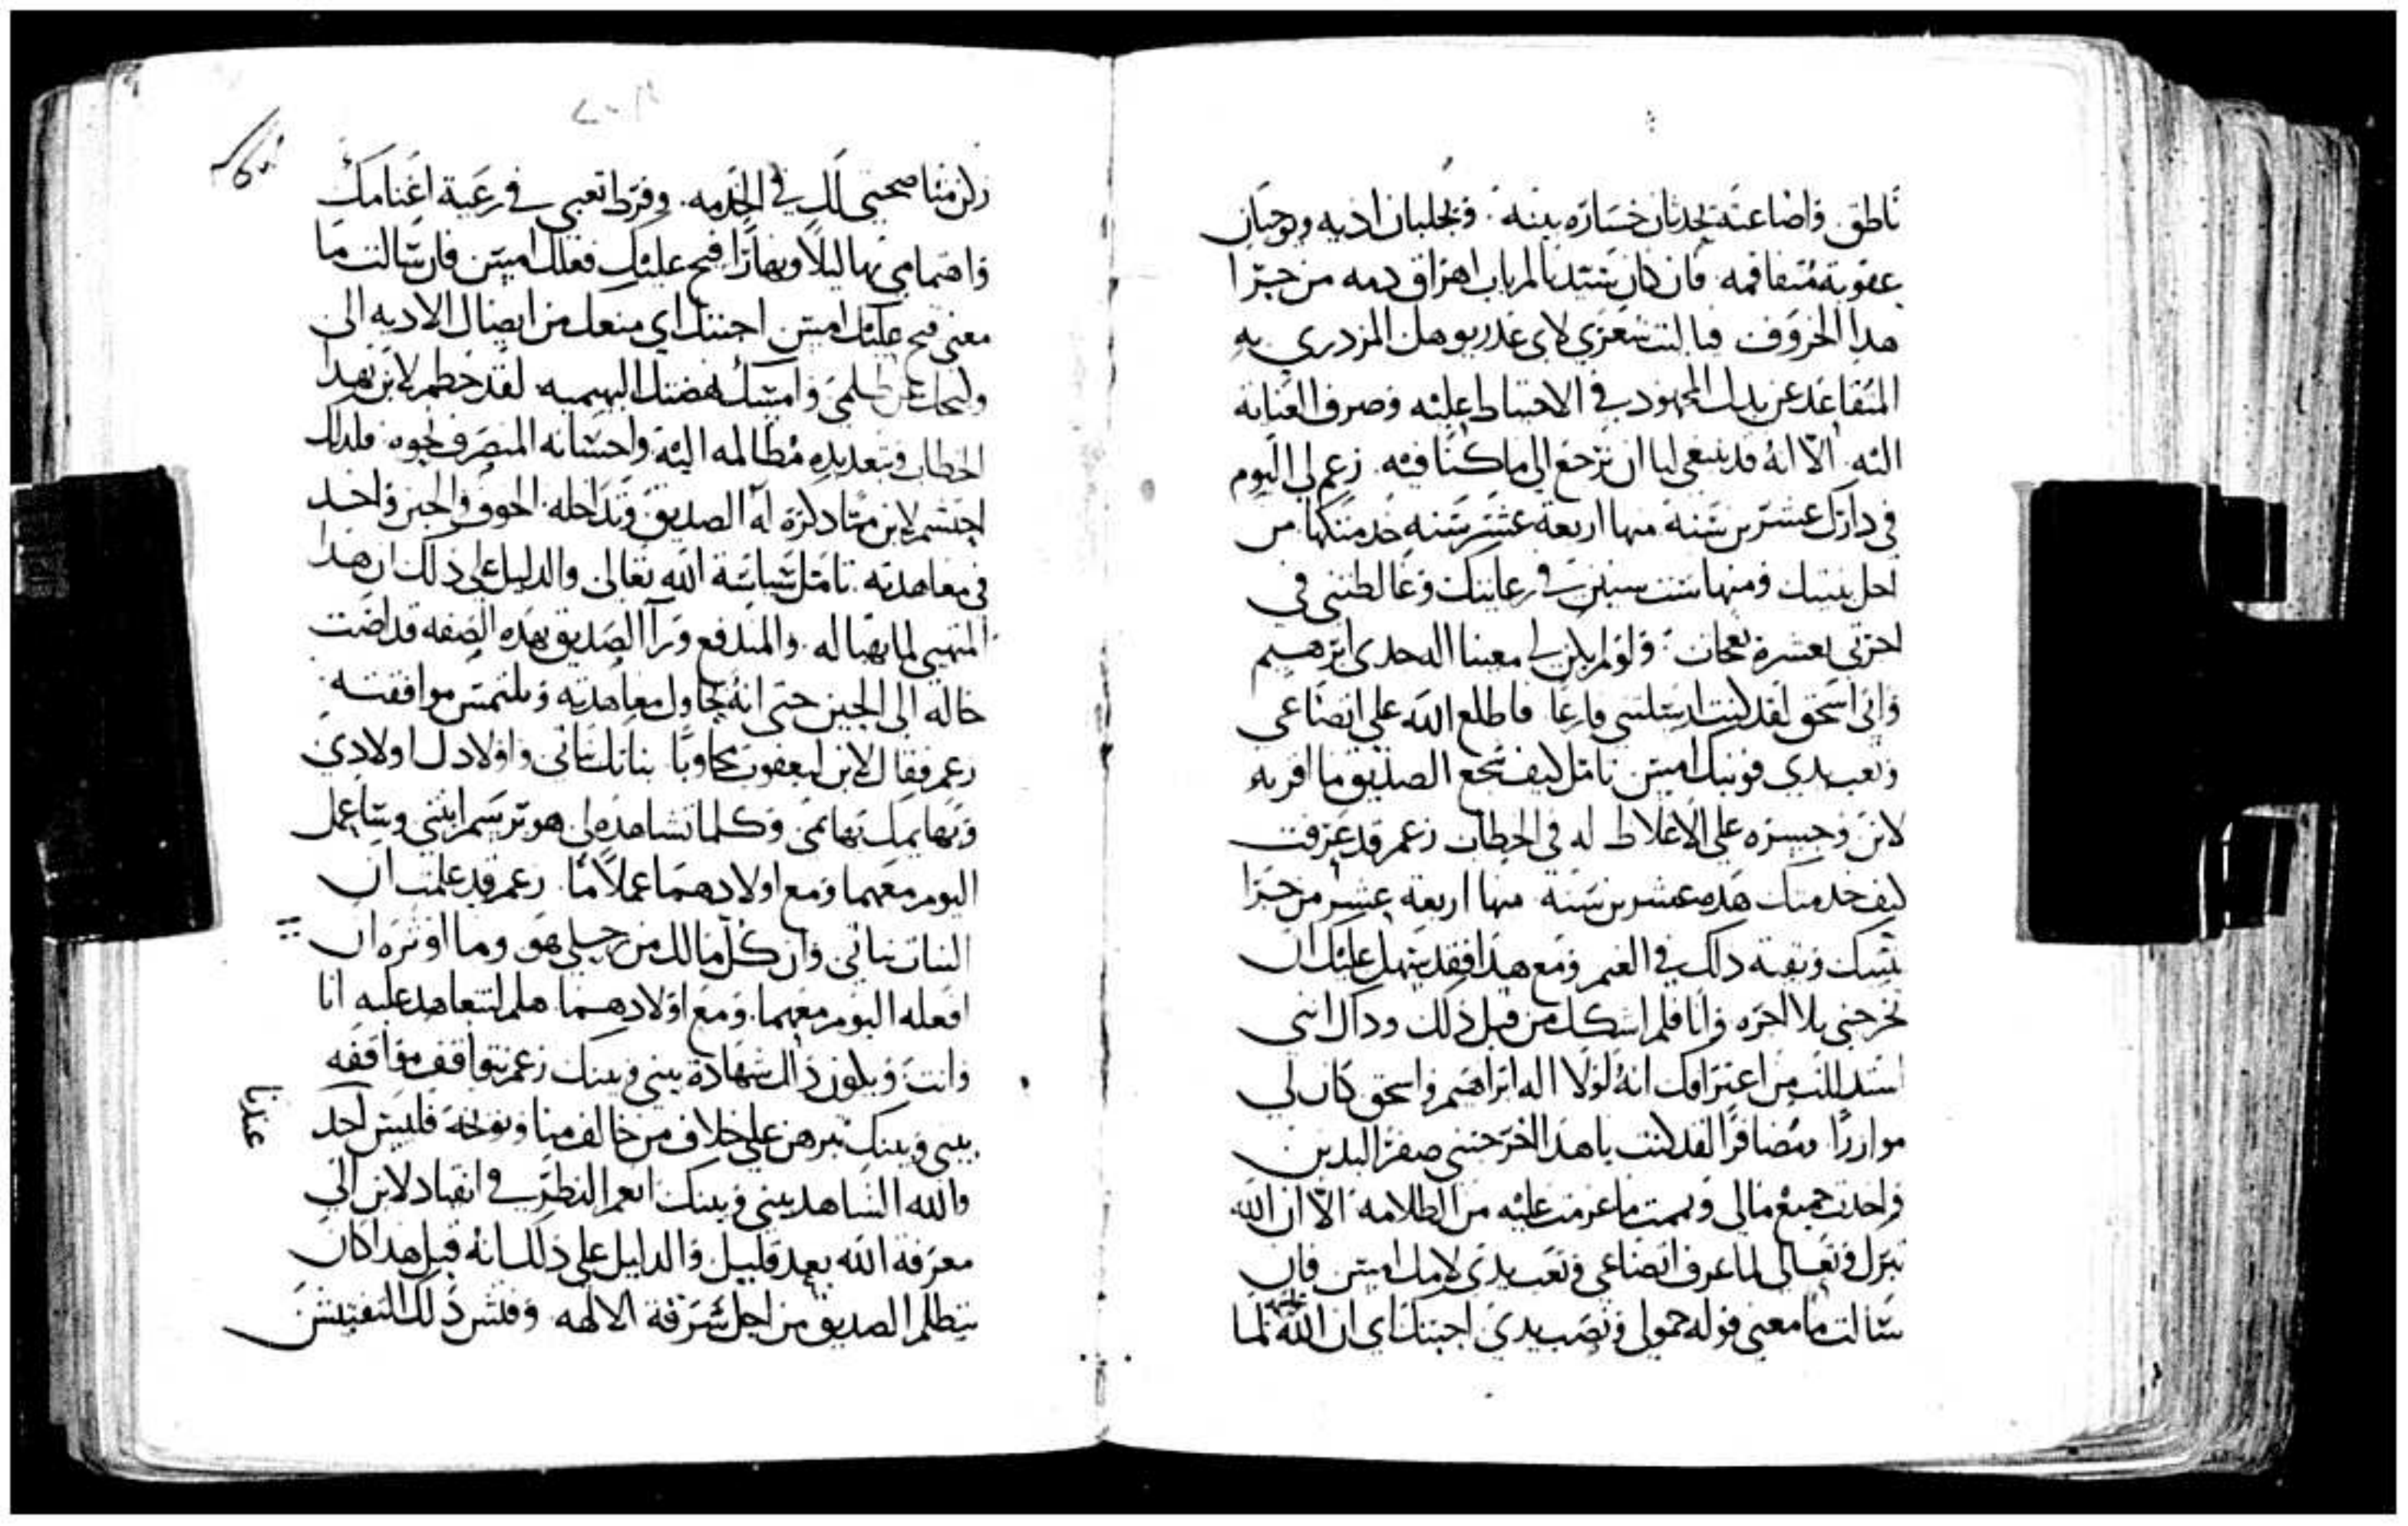 ناطق واضاعته تحدثان خساره بينه. وتجلبان اذيه وتوجبان
عقوبة متفاقمه فان كان يستد بالمرباب اهراق دمه من جرا
هدا الخروف فيا ليت شعري لاي عدر يوهل المزدري به
المتقاعد عن بدل المجهود في الاحتياط عليه وصرف العنايه
اليه الا انه قد ينبغي لنا ان نرجع الى ما كنا فيه. زعم لي اليوم
في دارك عشرين سنة منها اربعة عشر سنه خدمتكها من
اجل بنتيك ومنها ست سنين في رعايتك وغالطتني في
اجرتي بعشرة نعجات. ولو لم يكن لي معينا اله جدي ابرهيم
واني اسحق لقد كنت ارسلتني فارغا فاطلع الله على اتضاعي
وتعب يدي فوبخك امس تامل كيف شجع الصديق ما اقر به
لابن وجسره على الاغلاط له في الخطاب زعم قد عرفت
كيف خدمتك هده عشرين سنه منها اربعة عشر من جرا
بنتيك وبقية دلك في الغنم ومع هدا فقد سهل عليك ان
تخرجني بلا اجره وانا فلم اشكك من قبل ذلك ودال انني
استدللت من اعترافك انه لولا اله ابراهيم واسحق كان لي
مواررا متضافرا لقد كنت يا هدا اخرجتني صفر اليدين
واخدت جميع مالي وتممت ما عزمت عليه من الظلامه الا ان الله
تبرك وتعالى لما عرف اتضاعي وتعب يدي لامك امس فان
سالت ما معنى قوله خمولي وتصب يدي اجبتك اي ان الله لما
ذكر مناصحتي لك في الخدمه. وفرط تعبي في رعية اغنامك
واهتمامي بها ليلا ونهارا فتح عليك فعلك امس فان سالت ما
معنى فتح عليك امس اجبتك اي منعك من ايصال الاديه الي
ظلمي وامسك هضتك البهيميه لقد حطم لابن بهدا
الخطاب وبتعديده مظالمه اليه واحسانه المنصرف نحوه فلدلك
احتشم لابن مما دكره له الصديق وتداخله الخوف والجبن واخد
في معاهدته تامل سياسة الله تعالى والدليل على ذلك ان هدا
المتهيى لما تهيا له والمندفع ورآ الصديق بهده الصفه قد افضت
حاله الى الجبن حتى انه يحاول معاهدته ويلتمس موافقته
زعم فقال لابن ليعقوب مجاوبا بناتك بناتي واولادك اولادي
وبهايمك بهائمي وكلما تشاهده لي هو ترسم ابنتي وساعمل
اليوم معهما ومع اولادهما عملا ما. زعم قد علمت ان
البنات بناتي وان كل مالك من رحيلي هو وما اوثره ان
افعله اليوم معهما. ومع اولادهما هلم لنتعاهد عليه انا
وانت ويكون ذلك شهادة بيني وبينك زعم نتواقف مواقفه
بيني وبينك تبرهن على خلاف من خالف منا وتوبخه فليس احد
عندنا
والله الشاهد بيني وبينك انعم النظر في انقياد لابن الى
معرفة الله بعد قليل والدليل على ذلك انه قبل هدا كان
يتظلم الصديق من اجل سرقة الالهه وفتش ذلك التفتيش